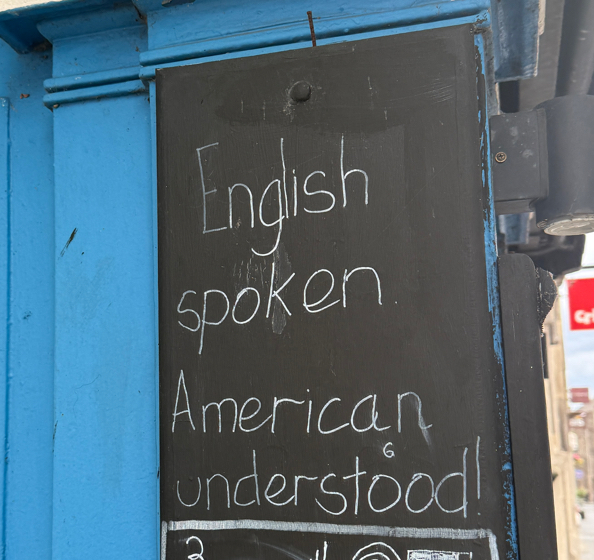 English
spoken.
American
understood!
6
3